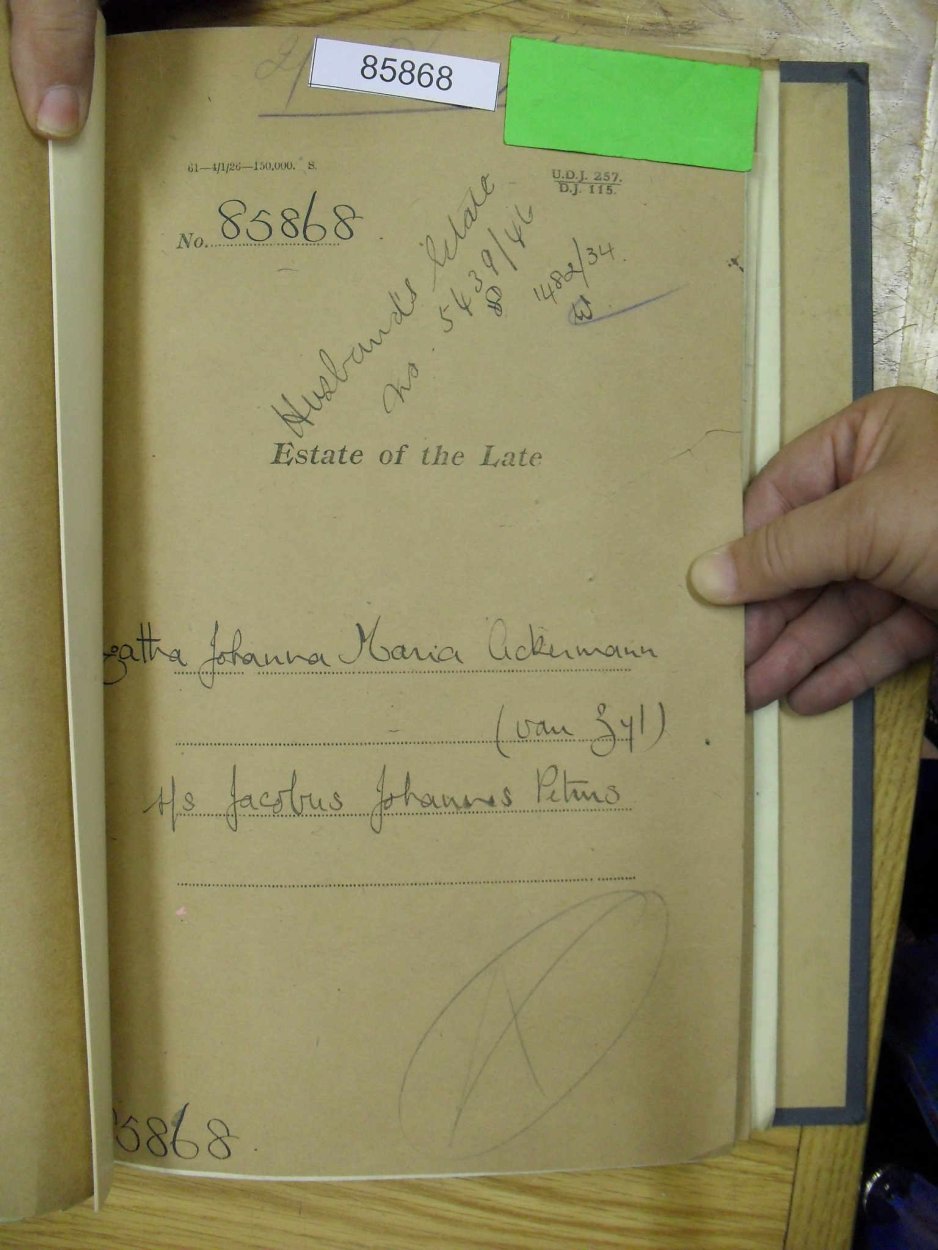 85868
61—4/1/26—150,000. S.
U.D.J. 257.
D.J. 115.
No. 85868
Husband's Estate
No 5439/46
1482/34.
Estate of the Late
gatha Johanna Maria Ackermann
(van Zyl)
s/s Jacobus Johannes Petrus
5868